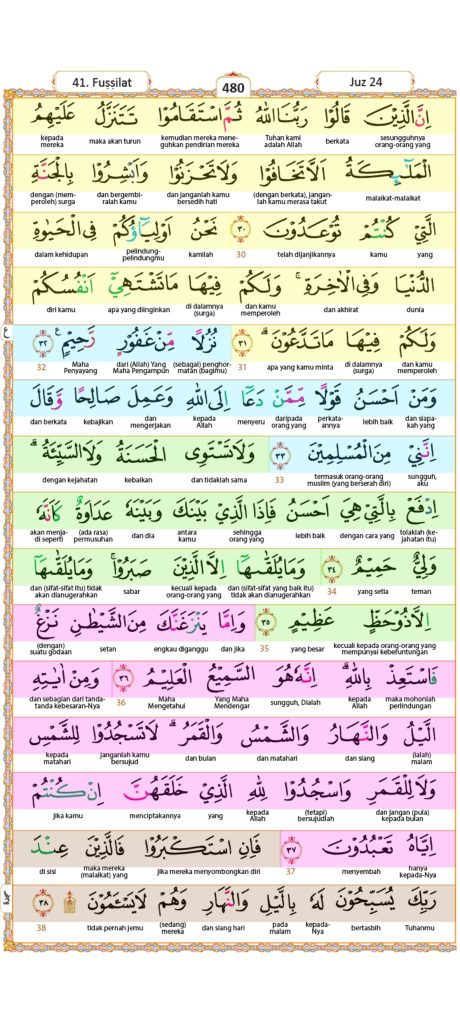 41. Fuṣṣilat
480
Juz 24
اِنَّ الَّذِيْنَ قَالُوْا رَبُّنَا اللّٰهُ ثُمَّ اسْتَقَامُوْا تَتَنَزَّلُ عَلَيْهِمُ
sesungguhnya orang-orang yang berkata Tuhan kami adalah Allah kemudian mereka mene-guhkan pendirian mereka maka akan turun kepada mereka
الْمَلٰۤىِٕكَةُ اَلَّا تَخَافُوْا وَلَا تَحْزَنُوْا وَاَبْشِرُوْا بِالْجَنَّةِ
malaikat-malaikat (dengan berkata), jangan-lah kamu merasa takut dan janganlah kamu bersedih hati dan bergembi-ralah kamu dengan (mem-peroleh) surga
الَّتِيْ كُنْتُمْ تُوْعَدُوْنَ ٣٠ نَحْنُ اَوْلِيَاۤؤُكُمْ فِى الْحَيٰوةِ
yang kamu telah dijanjikannya 30 kamilah pelindung-pelindungmu dalam kehidupan
الدُّنْيَا وَفِى الْاٰخِرَةِ ۚ وَلَكُمْ فِيْهَا مَا تَشْتَهِيْٓ اَنْفُسُكُمْ
dunia dan akhirat dan kamu memperoleh di dalamnya (surga) apa yang diinginkan diri kamu
وَلَكُمْ فِيْهَا مَا تَدَّعُوْنَ ۗ ٣١ نُزُلًا مِّنْ غَفُوْرٍ رَّحِيْمٍ ࣖ ٣٢
dan kamu memperoleh di dalamnya (surga) apa yang kamu minta 31 (sebagai) penghor-matan (bagimu) dari (Allah) Yang Maha Pengampun Maha Penyayang 32
ع
وَمَنْ اَحْسَنُ قَوْلًا مِّمَّنْ دَعَآ اِلَى اللّٰهِ وَعَمِلَ صَالِحًا وَّقَالَ
dan siapa-kah yang lebih baik perkata-annya daripada orang yang menyeru kepada Allah dan mengerjakan kebajikan dan berkata
اِنَّنِيْ مِنَ الْمُسْلِمِيْنَ ٣٣ وَلَا تَسْتَوِى الْحَسَنَةُ وَلَا السَّيِّئَةُ ۗ
sungguh, aku termasuk orang-orang muslim (yang berserah diri) 33 dan tidaklah sama kebaikan dengan kejahatan
اِدْفَعْ بِالَّتِيْ هِيَ اَحْسَنُ فَاِذَا الَّذِيْ بَيْنَكَ وَبَيْنَهٗ عَدَاوَةٌ كَاَنَّهٗ
tolaklah (ke-jahatan itu) dengan cara yang lebih baik sehingga orang yang antara kamu dan dia (ada rasa) permusuhan akan menja-di seperti
وَلِيٌّ حَمِيْمٌ ٣٤ وَمَا يُلَقّٰىهَآ اِلَّا الَّذِيْنَ صَبَرُوْا ۚ وَمَا يُلَقّٰىهَآ
teman yang setia 34 dan (sifat-sifat yang baik itu) tidak akan dianugerahkan kecuali kepada orang-orang yang sabar dan (sifat-sifat itu) tidak akan dianugerahkan
اِلَّا ذُوْ حَظٍّ عَظِيْمٍ ٣٥ وَاِمَّا يَنْزَغَنَّكَ مِنَ الشَّيْطٰنِ نَزْغٌ
kecuali kepada orang-orang yang mempunyai keberuntungan yang besar 35 dan jika engkau diganggu setan (dengan) suatu godaan
فَاسْتَعِذْ بِاللّٰهِ ۗ اِنَّهٗ هُوَ السَّمِيْعُ الْعَلِيْمُ ٣٦ وَمِنْ اٰيٰتِهِ
maka mohonlah perlindungan kepada Allah sungguh, Dialah Yang Maha Mendengar Maha Mengetahui 36 dan sebagian dari tanda-tanda kebesaran-Nya
الَّيْلُ وَالنَّهَارُ وَالشَّمْسُ وَالْقَمَرُ ۗ لَا تَسْجُدُوْا لِلشَّمْسِ
(ialah) malam dan siang dan matahari dan bulan janganlah kamu bersujud kepada matahari
وَلَا لِلْقَمَرِ وَاسْجُدُوْا لِلّٰهِ الَّذِيْ خَلَقَهُنَّ اِنْ كُنْتُمْ
dan jangan (pula) kepada bulan (tetapi) bersujudlah kepada Allah yang menciptakannya jika kamu
اِيَّاهُ تَعْبُدُوْنَ ٣٧ فَاِنِ اسْتَكْبَرُوْا فَالَّذِيْنَ عِنْدَ
hanya kepada-Nya menyembah 37 jika mereka menyombongkan diri maka mereka (malaikat) yang di sisi
رَبِّكَ يُسَبِّحُوْنَ لَهٗ بِالَّيْلِ وَالنَّهَارِ وَهُمْ لَا يَسْـَٔمُوْنَ ۩ ٣٨
Tuhanmu bertasbih kepada-Nya pada malam dan siang hari (sedang) mereka tidak pernah jemu 38
سجدة